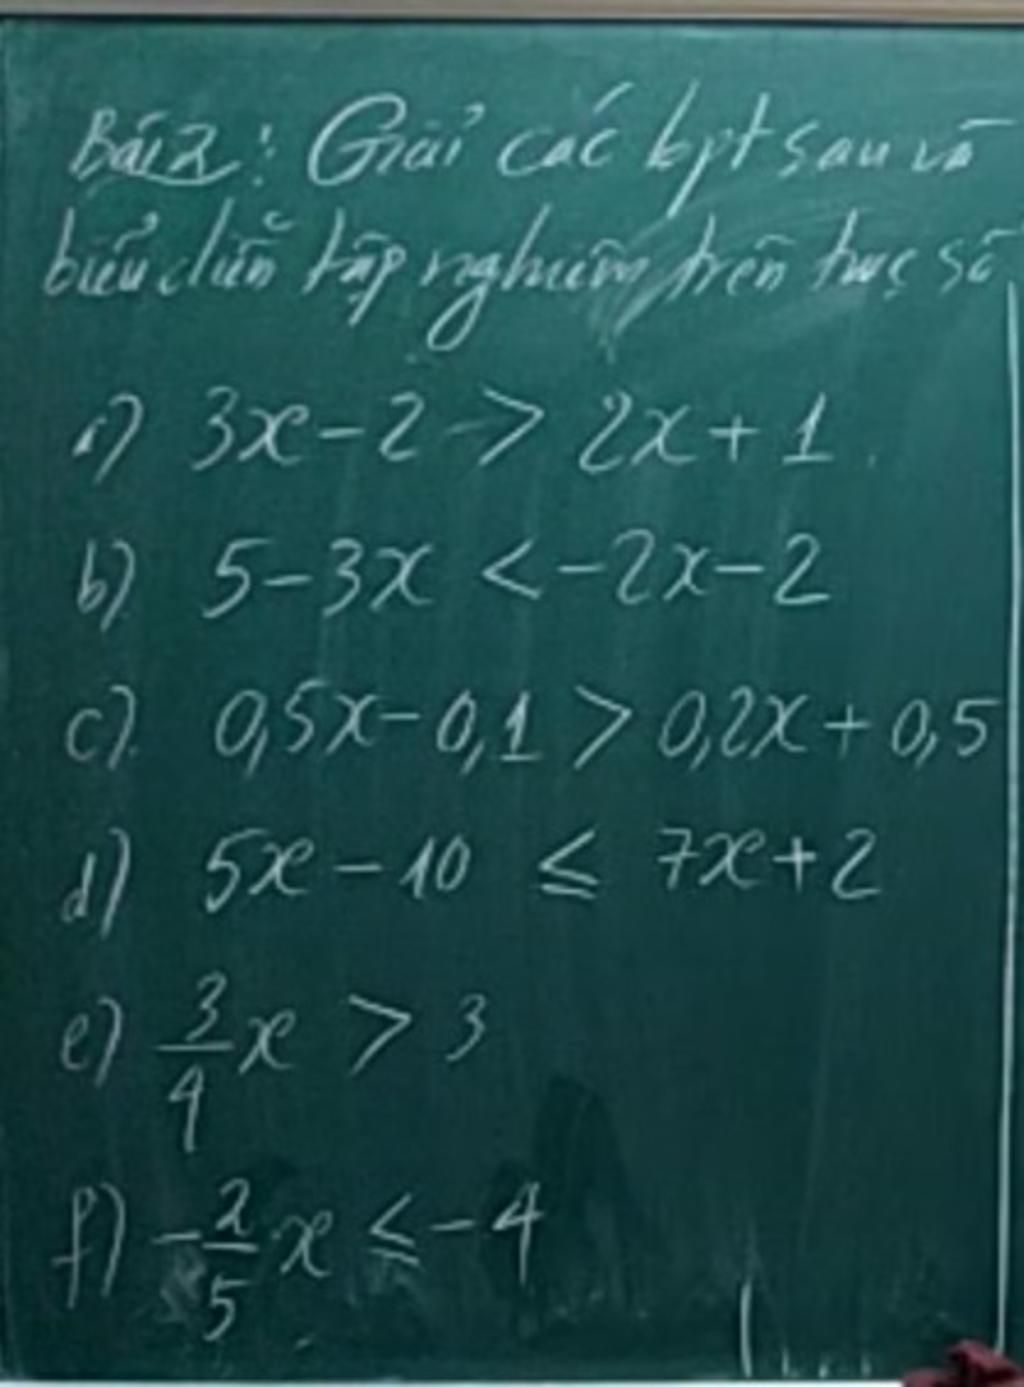 Bài 2: Giải các bpt sau và
biểu diễn tập nghiệm trên trục số
a) 3x - 2 > 2x + 1
b) 5 - 3x < -2x - 2
c) 0,5x - 0,1 > 0,2x + 0,5
d) 5x - 10 ≤ 7x + 2
e) 3/4 x > 3
f) -2/5 x ≤ -4